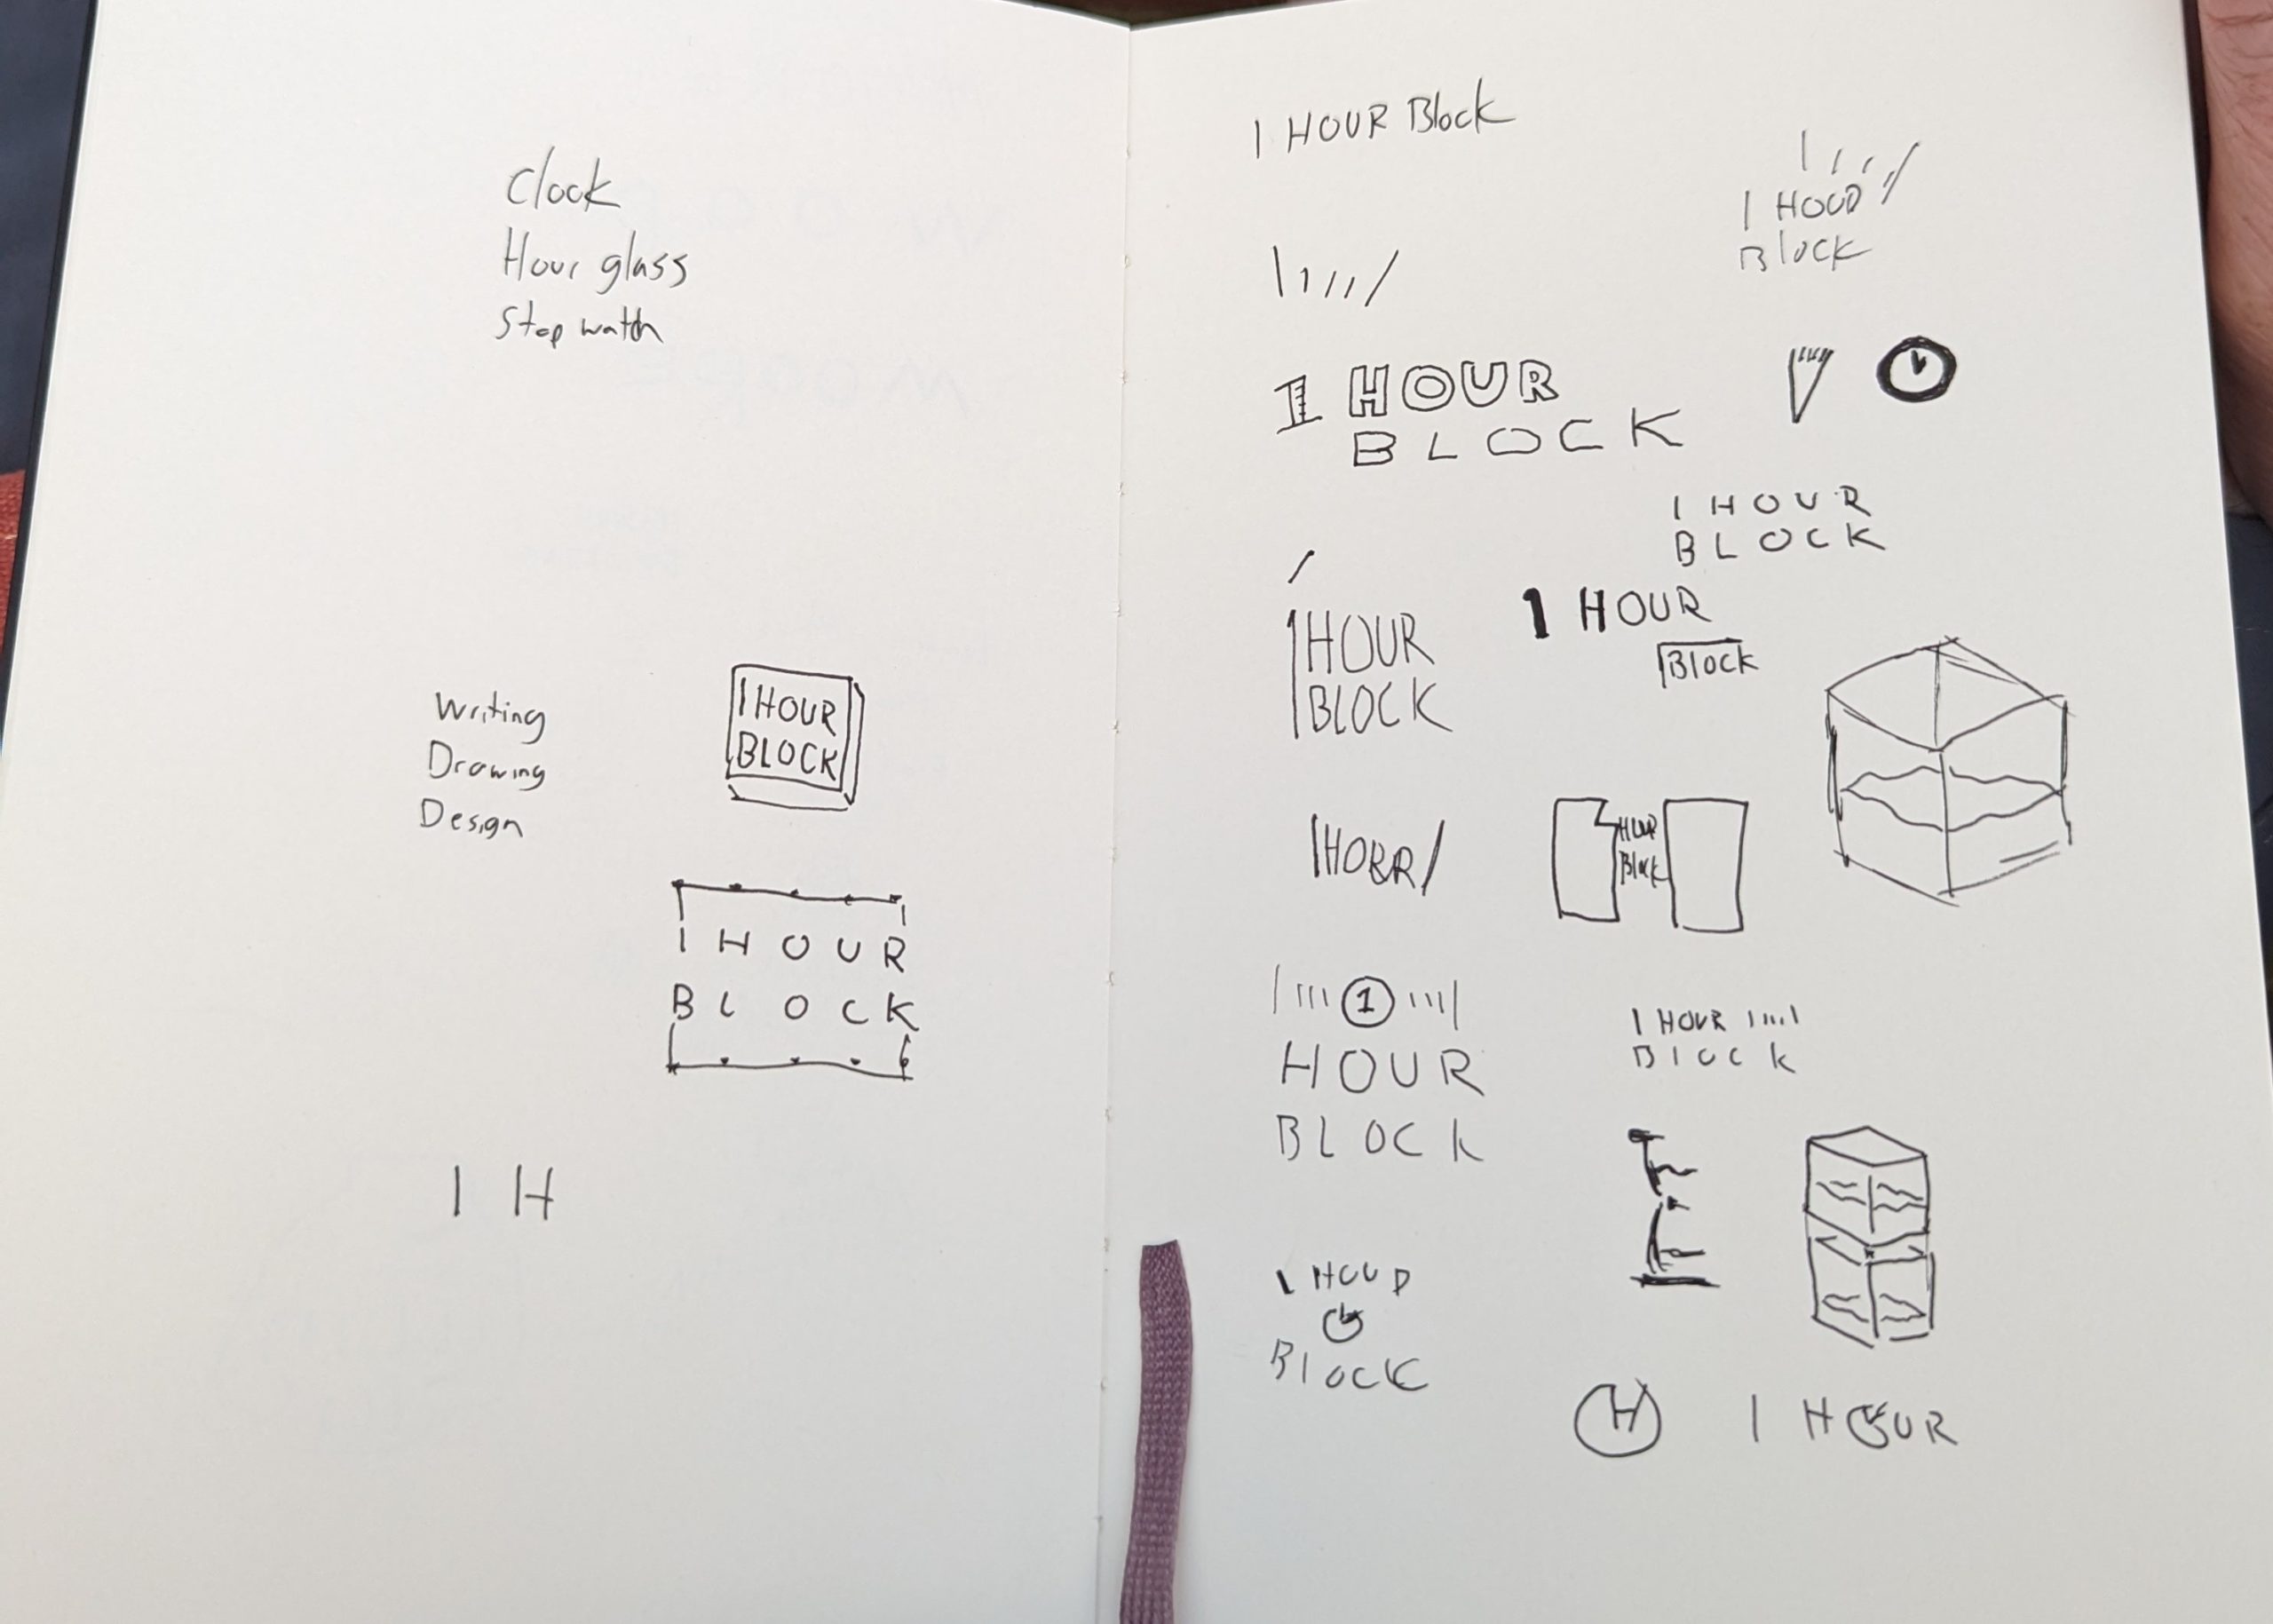 Clock
Hour glass
Stop watch
Writing
Drawing
Design
1 HOUR
BLOCK
1 HOUR
BLOCK
1 H
1 HOUR Block
1 HOUR
Block
1 HOUR
BLOCK
1 HOUR
BLOCK
1 HOUR
Block
1HOUR
BLOCK
1HOUR
HOUR
Block
1
HOUR
BLOCK
1 HOUR
BLOCK
1 HOUR
BLOCK
H
1 HOUR